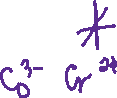 *
Co³⁻ Cr²⁺